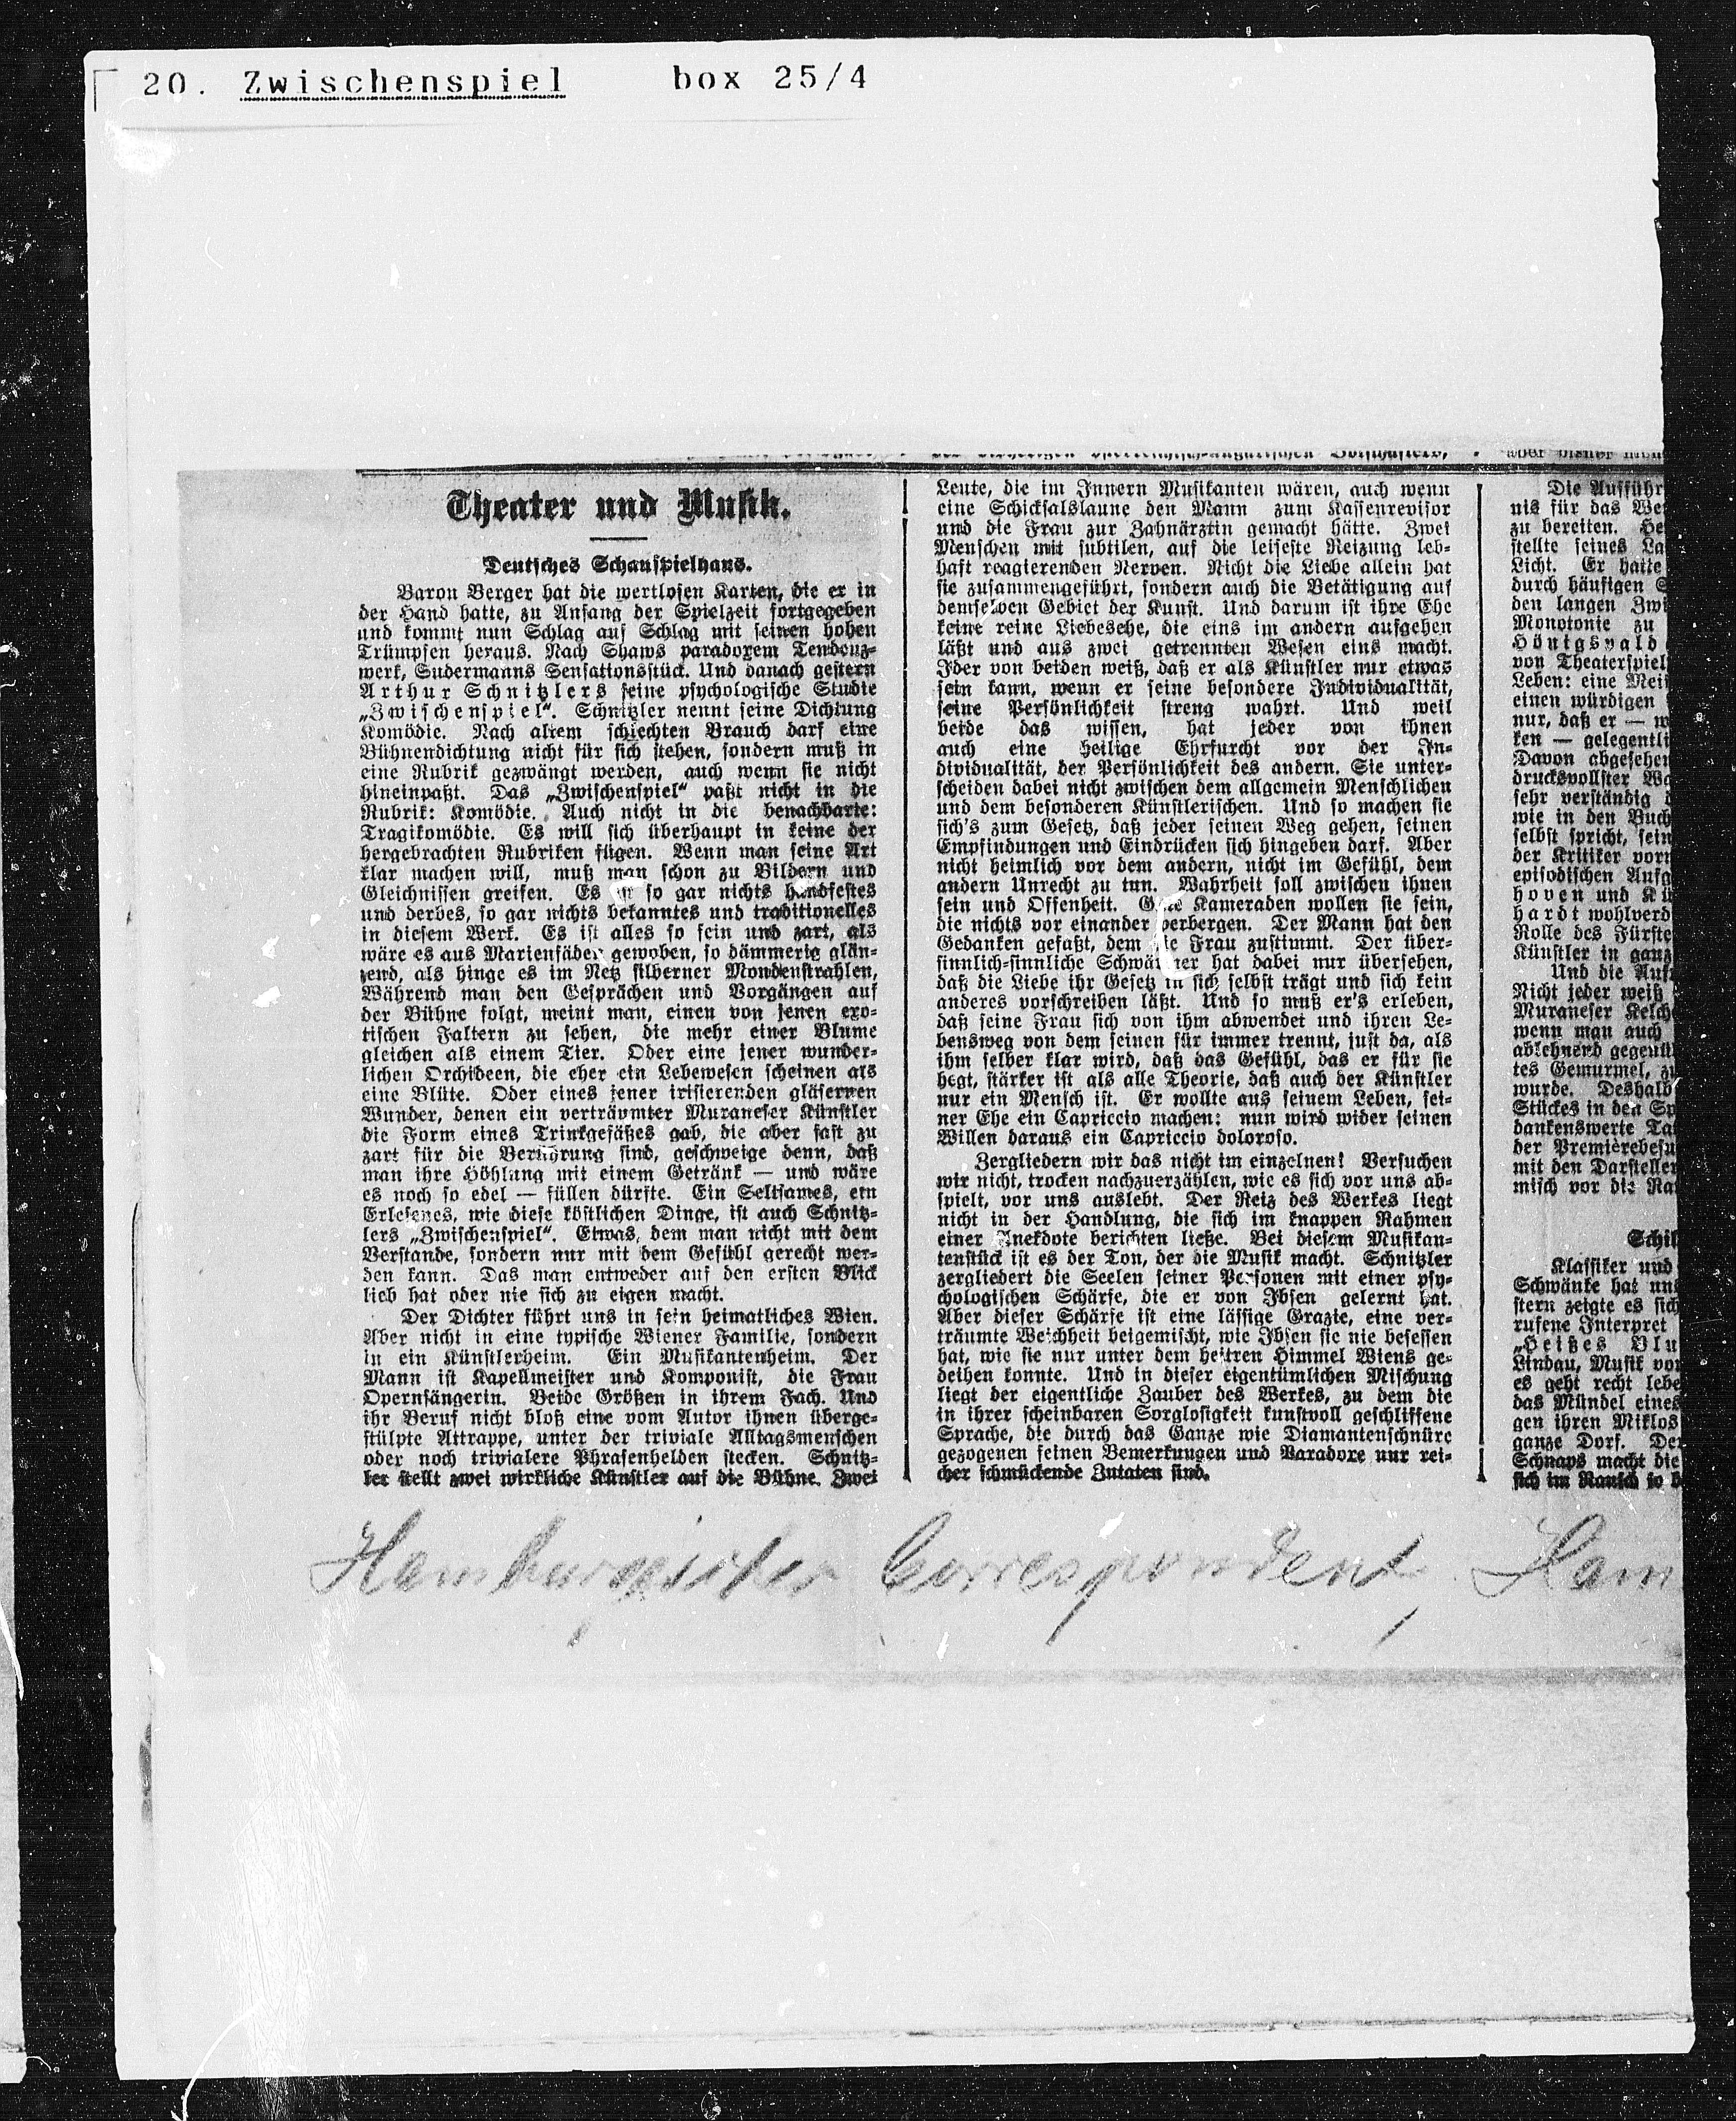 20. Zwischenspiel box 25/4
Theater und Musik.
Deutsches Schauspielhaus.
Baron Berger hat die wertlosen Karten, die er in
der Hand hatte, zu Anfang der Spielzeit fortgegeben
und kommt nun Schlag auf Schlag mit seinen hohen
Trümpfen heraus. Nach Shaws paradoxem Tendenz-
werk, Sudermanns Sensationsstück. Und danach gestern
Arthur Schnitzlers feine psychologische Studie
„Zwischenspiel“. Schnitzler nennt seine Dichtung
Komödie. Nach altem schlechten Brauch darf eine
Bühnendichtung nicht für sich stehen, sondern muß in
eine Rubrik gezwängt werden, auch wenn sie nicht
hineinpaßt. Das „Zwischenspiel“ paßt nicht in die
Rubrik: Komödie. Auch nicht in die benachbarte:
Tragikomödie. Es will sich überhaupt in keine der
hergebrachten Rubriken fügen. Wenn man seine Art
klar machen will, muß man schon zu Bildern und
Gleichnissen greifen. Es so gar nichts handfestes
und derbes, so gar nichts bekanntes und traditionelles
in diesem Werk. Es ist alles so fein und zart, als
wäre es aus Marienfäden gewoben, so dämmerig glän-
zend, als hinge es im Netz silberner Mondenstrahlen,
Während man den Gesprächen und Vorgängen auf
der Bühne folgt, meint man, einen von jenen exo-
tischen Faltern zu sehen, die mehr einer Blume
gleichen als einem Tier. Oder eine jener wunder-
lichen Orchideen, die eher ein Lebewesen scheinen als
eine Blüte. Oder eines jener irisierenden gläsernen
Wunder, denen ein verträumter Muraneser Künstler
die Form eines Trinkgefäßes gab, die aber fast zu
zart für die Berührung sind, geschweige denn, daß
man ihre Höhlung mit einem Getränk — und wäre
es noch so edel — füllen dürfte. Ein Seltsames, ein
Erlesenes, wie diese köstlichen Dinge, ist auch Schnitz-
lers „Zwischenspiel“. Etwas, dem man nicht mit dem
Verstande, sondern nur mit dem Gefühl gerecht wer-
den kann. Das man entweder auf den ersten Blick
lieb hat oder nie sich zu eigen macht.
Der Dichter führt uns in sein heimatliches Wien.
Aber nicht in eine typische Wiener Familie, sondern
in ein Künstlerheim. Ein Musikantenheim. Der
Mann ist Kapellmeister und Komponist, die Frau
Opernsängerin. Beide Größen in ihrem Fach. Und
ihr Beruf nicht bloß eine vom Autor ihnen überge-
stülpte Attrappe, unter der triviale Alltagsmenschen
oder noch trivialere Phrasenhelden stecken. Schnitz-
ler stellt zwei wirkliche Künstler auf die Bühne. Zwei
Leute, die im Innern Musikanten wären, auch wenn
eine Schicksalslaune den Mann zum Kassenrevisor
und die Frau zur Zahnärztin gemacht hätte. Zwei
Menschen mit subtilen, auf die leiseste Reizung leb-
haft reagierenden Nerven. Nicht die Liebe allein hat
sie zusammengeführt, sondern auch die Betätigung auf
demselben Gebiet der Kunst. Und darum ist ihre Ehe
keine reine Liebesehe, die eins im andern aufgehen
läßt und aus zwei getrennten Wesen eins macht.
Jder von beiden weiß, daß er als Künstler nur etwas
sein kann, wenn er seine besondere Individualität,
seine Persönlichkeit streng wahrt. Und weil
beide das wissen, hat jeder von ihnen
auch eine heilige Ehrfurcht vor der In-
dividualität, der Persönlichkeit des andern. Sie unter-
scheiden dabei nicht zwischen dem allgemein Menschlichen
und dem besonderen Künstlerischen. Und so machen sie
sich's zum Gesetz, daß jeder seinen Weg gehen, seinen
Empfindungen und Eindrücken sich hingeben darf. Aber
nicht heimlich vor dem andern, nicht im Gefühl, dem
andern Unrecht zu tun. Wahrheit soll zwischen ihnen
sein und Offenheit. Gute Kameraden wollen sie sein,
die nichts vor einander verbergen. Der Mann hat den
Gedanken gefaßt, dem die Frau zustimmt. Der über-
sinnlich-sinnliche Schwärmer hat dabei nur übersehen,
daß die Liebe ihr Gesetz in sich selbst trägt und sich kein
anderes vorschreiben läßt. Und so muß er's erleben,
daß seine Frau sich von ihm abwendet und ihren Le-
bensweg von dem seinen für immer trennt, just da, als
ihm selber klar wird, daß das Gefühl, das er für sie
hegt, stärker ist als alle Theorie, daß auch der Künstler
nur ein Mensch ist. Er wollte aus seinem Leben, sei-
ner Ehe ein Capriccio machen: nun wird wider seinen
Willen daraus ein Capriccio doloroso.
Zergliedern wir das nicht im einzelnen! Versuchen
wir nicht, trocken nachzuerzählen, wie es sich vor uns ab-
spielt, vor uns auslebt. Der Reiz des Werkes liegt
nicht in der Handlung, die sich im knappen Rahmen
einer Anekdote berichten ließe. Bei diesem Musikan-
tenstück ist es der Ton, der die Musik macht. Schnitzler
zergliedert die Seelen seiner Personen mit einer psy-
chologischen Schärfe, die er von Ibsen gelernt hat.
Aber dieser Schärfe ist eine lässige Grazie, eine ver-
träumte Weichheit beigemischt, wie Ibsen sie nie besessen
hat, wie sie nur unter dem heitren Himmel Wiens ge-
deihen konnte. Und in dieser eigentümlichen Mischung
liegt der eigentliche Zauber des Werkes, zu dem die
in ihrer scheinbaren Sorglosigkeit kunstvoll geschliffene
Sprache, die durch das Ganze wie Diamantenschnüre
gezogenen feinen Bemerkungen und Paradoxe nur rei-
cher schmückende Zutaten sind.
Die Aufführ
nis für das We
zu bereiten. He
stellte seines La
Licht. Er hatte
durch häufigen
den langen Zwi
Monotonie zu
Hönigsvald
von Theaterspiel
Leben: eine Mei
einen würdigen
nur, daß er — w
ken — gelegentli
Davon abgesehen
drucksvollster Wo
sehr verständig
wie in den Buch
selbst spricht, sein
der Kritiker vorn
episodischen Aufg
hoven und Kü
hardt wohlverd
Rolle des Fürste
Künstler in ganz
Und die Auf
Nicht jeder weiß
Muraneser Kelch
wenn man auch
ablehnend gegenü
tes Gemurmel, zu
wurde. Deshalb
Stückes in den Sp
dankenswerte Ta
der Premièrebesu
mit den Darsteller
misch vor die Ra
Schil
Klassiker und
Schwänke hat uns
stern zeigte es sich
rufene Interpret
„Heißes Blu
Lindau, Musik von
es geht recht lebe
das Mündel eines
gen ihren Miklos
ganze Dorf. Der
Schnaps macht die
sich im Rausch so
Hamburgischer Correspondent, Ham